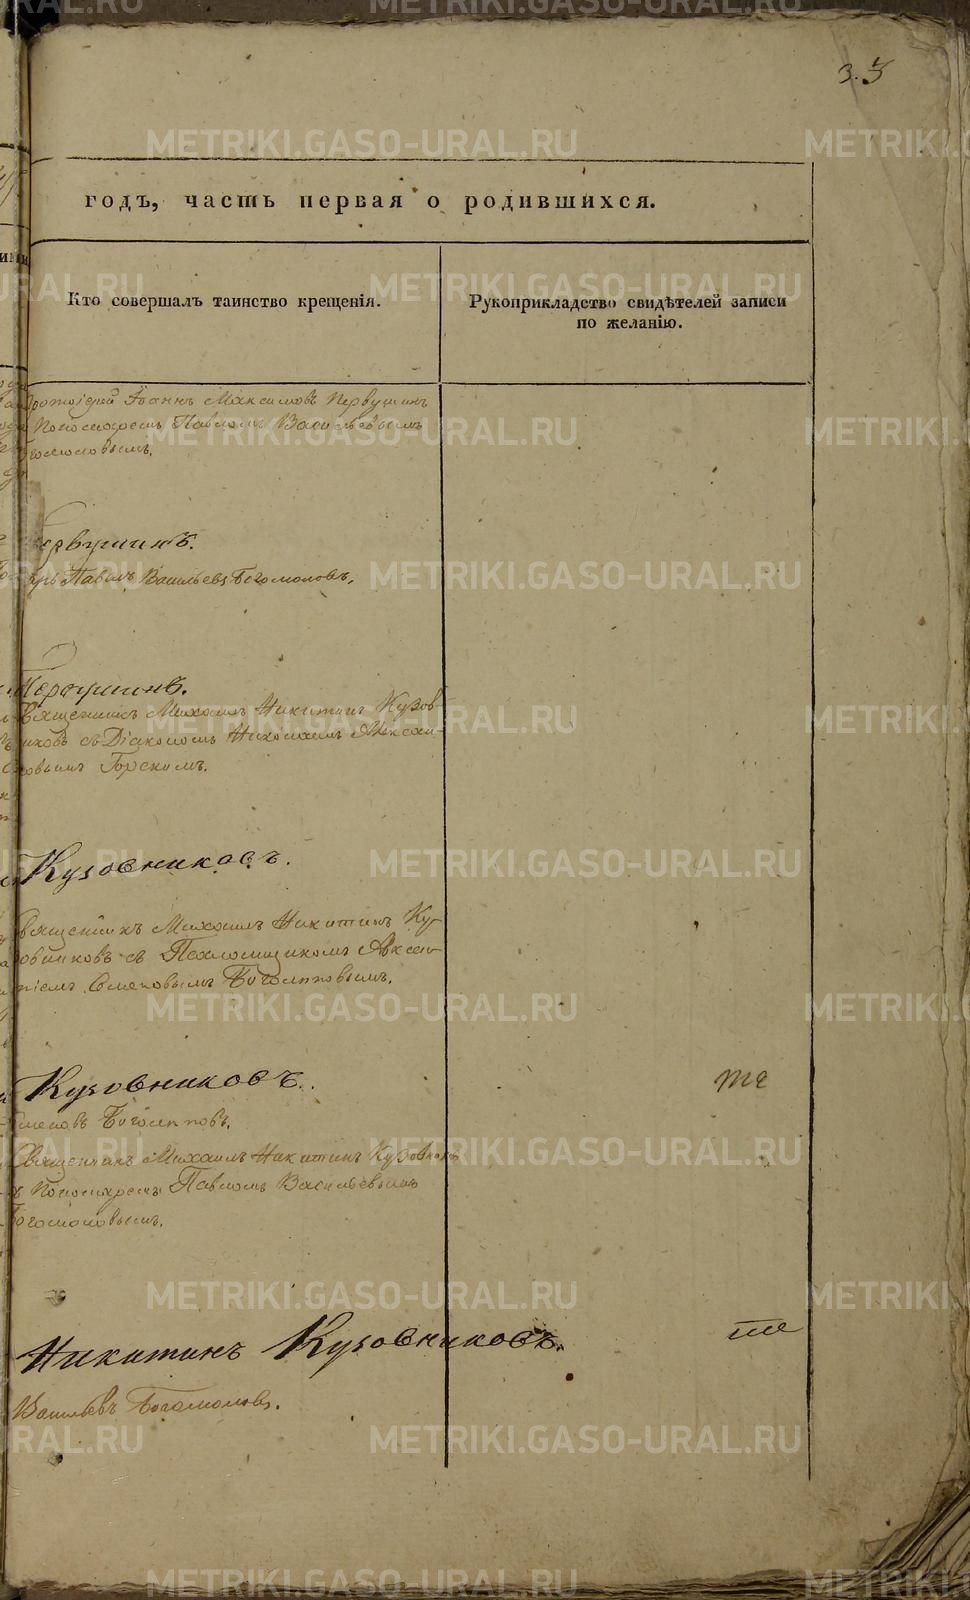 3.3
годъ, часть первая о родившихся.
Кто совершалъ таинство крещенія.
Рукоприкладство свидѣтелей записи
по желанію.
Протоіерей Іоаннъ Максимовъ Первушинъ
Пономаремъ Павломъ Васильевымъ
Богомоловымъ.
Первушинъ.
Павелъ Васильевъ Богомоловъ.
Первушинъ.
Священникъ Михаилъ Никитинъ Кузов-
никовъ съ Діакономъ Николаемъ Алексан-
ровымъ Горскимъ.
Кузовниковъ.
Священникъ Михаилъ Никитинъ Ку-
зовниковъ съ Псаломщикомъ Авксен-
тіемъ Семеновымъ Боголѣповымъ.
Кузовниковъ.
те
Семеновъ Боголѣповъ.
Священникъ Михаилъ Никитинъ Кузовников
ъ Пономаремъ Павломъ Васильевымъ
Богомоловымъ.
Никитинъ Кузовниковъ.
те
Васильевъ Богомоловъ.
METRIKI.GASO-URAL.RU